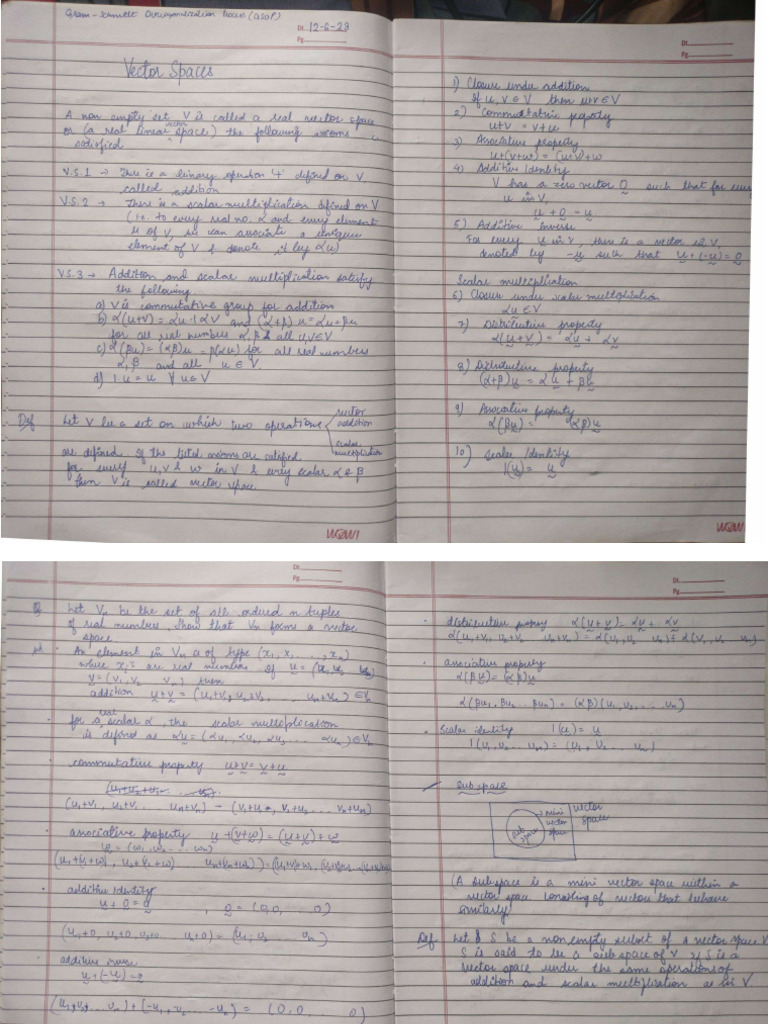 Gram-Schmidt Orthogonalization Process (GSOP)
Dt. 12-6-23
Pg.
Vector Spaces
A non empty set V is called a real vector space
or (a real linear space) the following axioms
satisfied
V.S.1 → There is a binary operation '+' defined on V
called addition
V.S.2 → There is a scalar multiplication defined on V
(i.e. to every real no. α and every element
u of V, we can associate a unique
element of V & denote it by αu)
V.S.3 → Addition and scalar multiplication satisfy
the following
a) V is commutative group for addition
b) α(u+v) = αu + αv and (α+β)u = αu+βu
for all real numbers α, β & all u,v∈V
c) α(βu) = (αβ)u = β(αu) for all real numbers
α, β and all u ∈ V.
d) 1.u = u ∀ u∈V
Def Let V be a set on which two operations
vector
addition
scalar
multiplication
are defined. If the listed axioms are satisfied
for every u,v & w in V & every scalar α & β
then V is called vector space
Dt.
Pg.
1) Closure under addition
If u, v ∈ V then u+v ∈ V
2) Commutative property
u+v = v+u
3) Associative property
u+(v+w) = (u+v)+w
4) Additive Identity
V has a zero vector 0 such that for every
u in V,
u + 0 = u
5) Additive Inverse
For every u in V, there is a vector in V,
denoted by -u such that u+(-u) = 0
Scalar multiplication
6) Closure under scalar multiplication
αu ∈ V
7) Distributive property
α(u+v) = αu + αv
8) Distributive property
(α+β)u = αu + βu
9) Associative property
α(βu) = (αβ)u
10) Scalar Identity
1(u) = u
Dt.
Pg.
Q. Let Vn be the set of all ordered n tuples
of real numbers, show that Vn forms a vector
space
An element in Vn a of type (x₁, x₂, ..., xn)
where xi = are real numbers if u = (u₁, u₂ un)
v = (v₁, v₂ vn) then
addition u+v = (u₁+v₁, u₂+v₂, ... un+vn) ∈ Vn
for a real scalar α, the scalar multiplication
is defined as αu = (αu₁, αu₂, αu₃ ... αun) ∈ Vn
commutative property u+v = v+u
(u₁+v₁, u₂+v₂ ... un+vn) = (v₁+u₁, v₁+u₂ ... vn+un)
associative property u+(v+w) = (u+v)+w
w = (w₁, w₂ ... wn)
additive identity
u+0 = u , 0 = (0,0, ... 0)
additive inverse
u+(-u) = 0
(u₁, u₂, ... un) + (-u₁, -u₂ ... -un) = (0,0, ... 0)
Dt.
Pg.
distributive property α(u+v) = αu + αv
α(u₁+v₁, u₂+v₂ un+vn) = α(u₁, u₂ un) + α(v₁, v₂ vn)
associative property
α(βu) = (αβ)u
α(βu₁, βu₂ ... βun) = (αβ)(u₁, u₂, ... un)
Scalar identity 1(u) = u
1(u₁, u₂ ... un) = (u₁, u₂ ... un)
Subspace
sub
space
mini
vector
space
vector
space
(A subspace is a mini vector space within a
vector space consisting of vectors that behave
similarly)
Def Let S be a non empty subset of a vector space V
S is said to be a subspace of V if S is a
vector space under the same operations of
addition and scalar multiplication as in V.